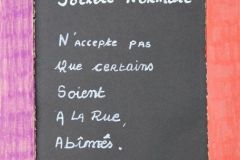 Société Normale
N'accepte pas
Que certains
Soient
A la Rue,
Abîmés.